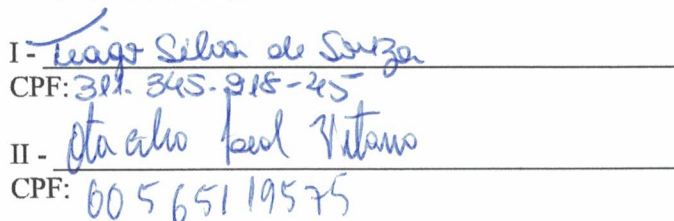 I - Tiago Silva de Souza
CPF: 311.345.918-45
II - Otacilio Vitorio
CPF: 00565119575